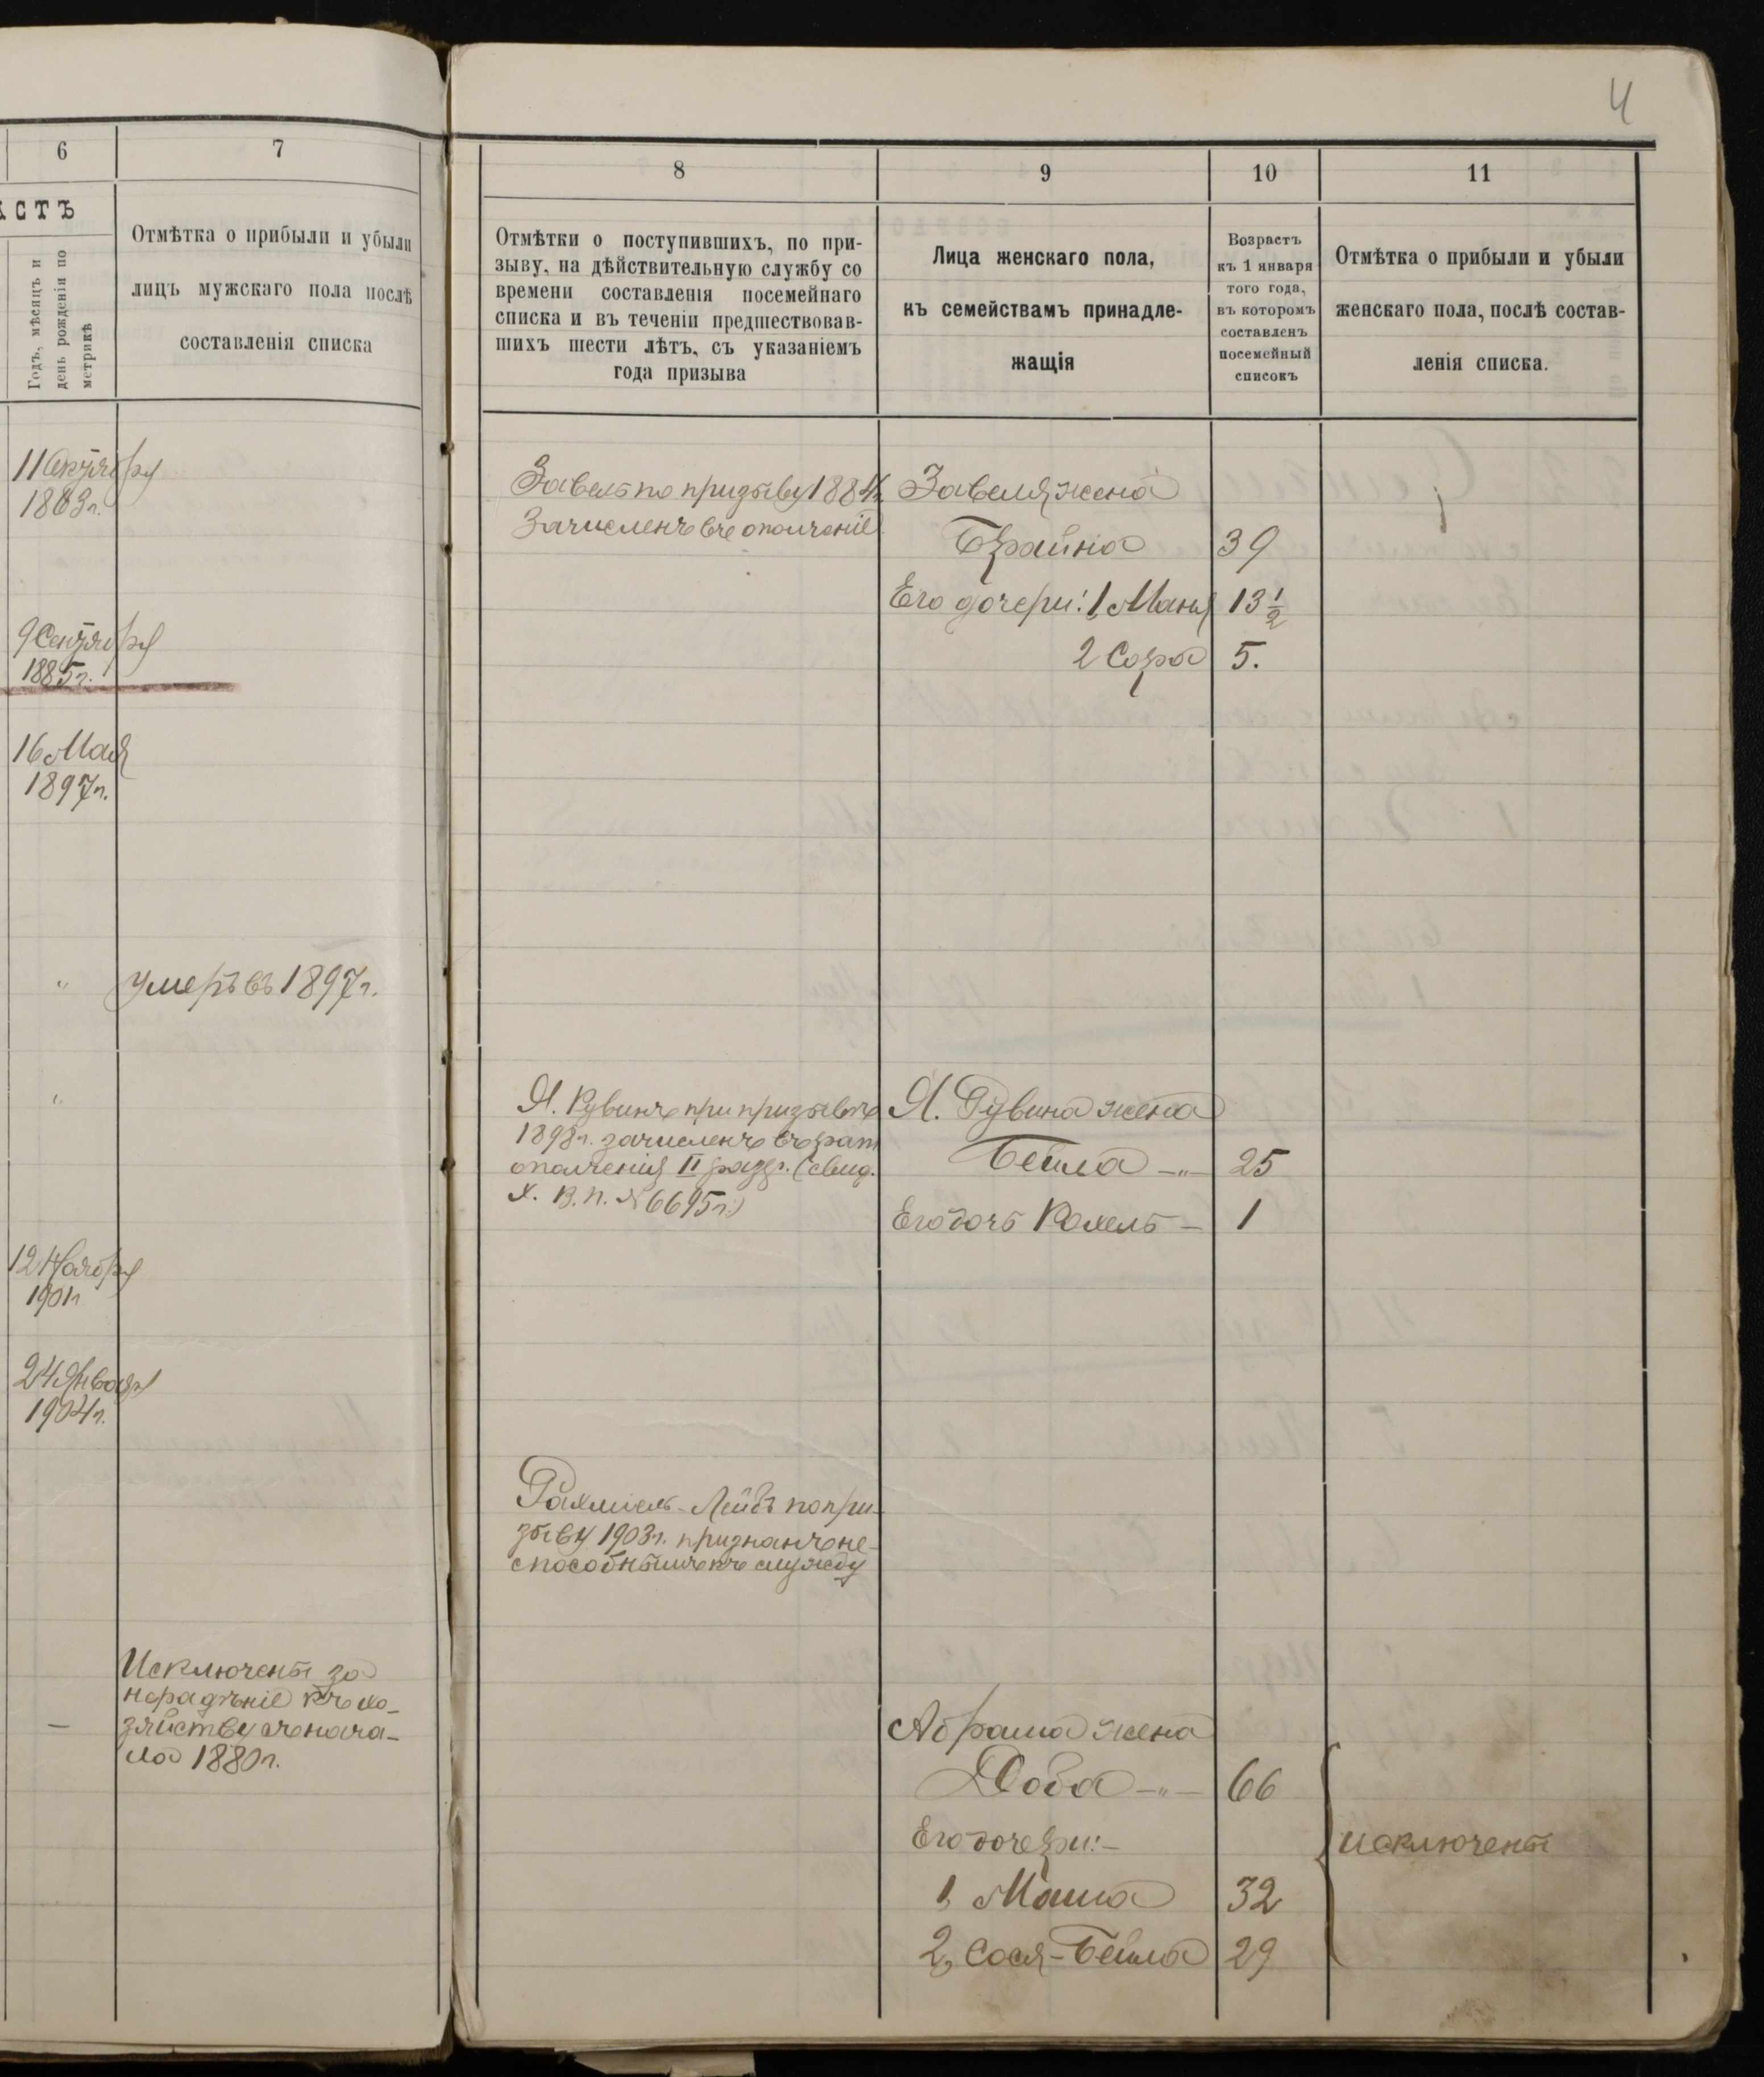 4
6
7
АСТЪ
Годъ, мѣсяцъ и
день рожденія по
метрикѣ
Отмѣтка о прибыли и убыли
лицъ мужскаго пола послѣ
составленія списка
11 Октября
1863 г.
9 Сентября
1885 г.
16 Мая
1897 г.
" умеръ въ 1897 г.
"
12 Ноября
1901 г
24 Января
1904 г.
Исключены за
нерадѣніе къ хо-
зяйству съ нача-
ла 1880 г.
—
8
9
10
11
Отмѣтки о поступившихъ, по при-
зыву, на дѣйствительную службу со
времени составленія посемейнаго
списка и въ теченіи предшествовав-
шихъ шести лѣтъ, съ указаніемъ
года призыва
Лица женскаго пола,
къ семействамъ принадле-
жащія
Возрастъ
къ 1 января
того года,
въ которомъ
составленъ
посемейный
списокъ
Отмѣтка о прибыли и убыли
женскаго пола, послѣ состав-
ленія списка.
Завель по призыву 1884 г.
Зачисленъ въ ополченіе
Завеля жена
Брайна 39
Его дочери: 1, Маня 13 ½
2 Сора 5.
Я. Рувинъ при призывѣ
1898 г. зачисленъ въ рат
ополченія II разр. (свид.
Х. В. П. № 6695 г.)
Я. Рувина жена
Бейла —"— 25
Его дочь Рохель — 1
Рахміель-Лейбъ по при-
зыву 1903 г. признанъ не-
способнымъ къ службу
Абрама жена
Доба —"— 66
Его дочери: —
1, Маша 32
2, Сося-Бейла 29
исключены